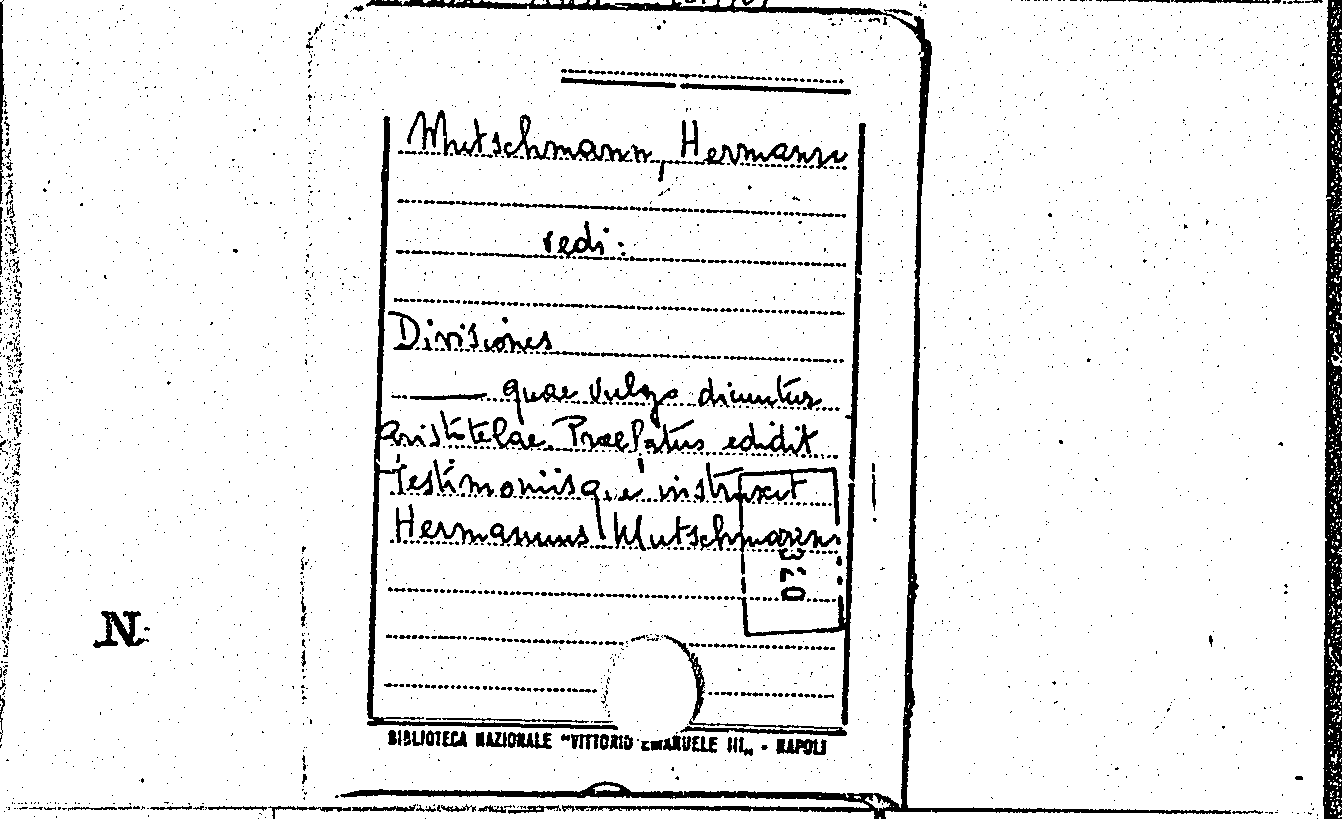 Mutschmann, Hermann
vedi:
Divisiones
—— quae vulgo dicuntur
aristotelae. Praefatus edidit
testimoniisque instruxit
Hermannus Mutschmann.
320
N
BIBLIOTECA NAZIONALE "VITTORIO EMANUELE III„ - NAPOLI